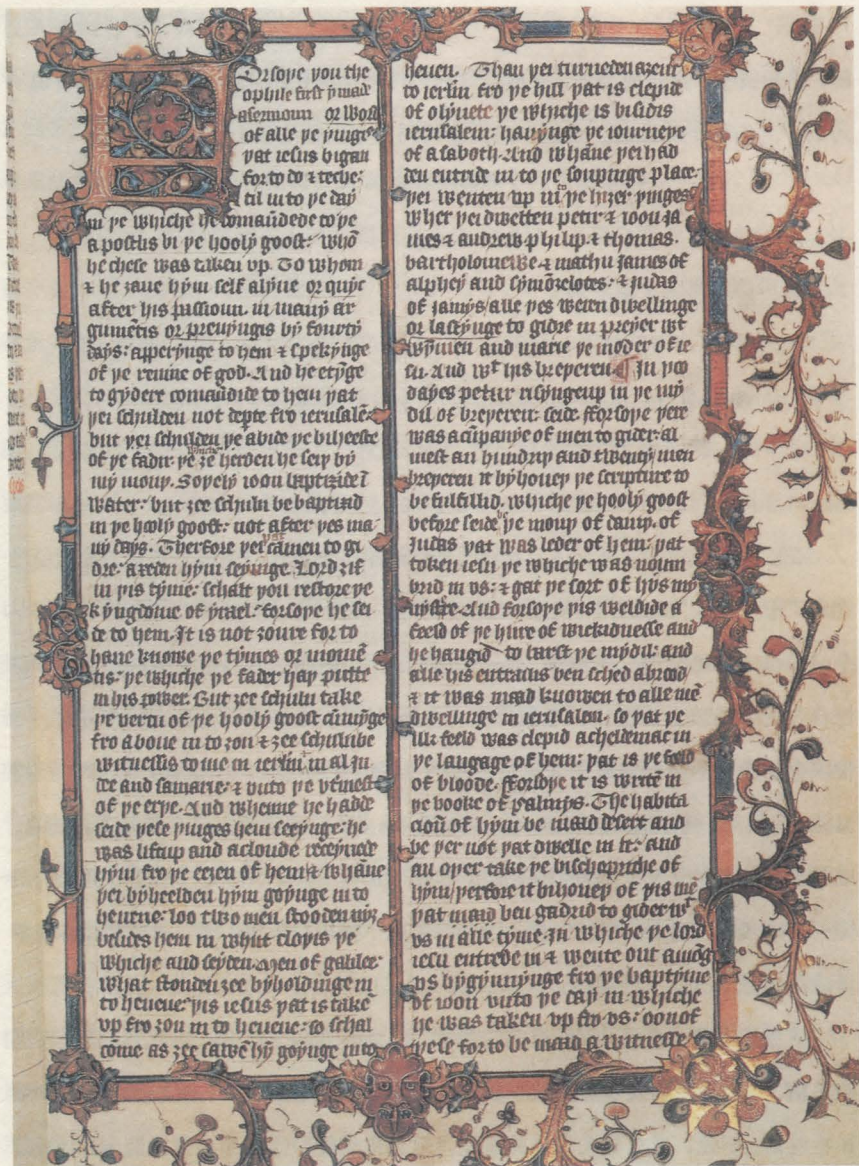 F Orsoþe þou the
ophile first ẏ maad
a sermoun or word
of alle þe þinges
þat iesus bigan
for to do & teche:
til in to þe day
in þe whiche he comaūdede to þe
apostlis bi þe hooly goost: whō
he chese was taken vp. To whom
& he ȝaue hym self alyue or quyc
after his passioun. in many ar
gumētis or preuyngis by fourty
days: apperynge to hem & spekynge
of þe rewme of god. And he etynge
to gydere comaūdide to hem þat
þei schulden not depte fro ierusalē:
but þei schulden þe abide þe biheeste
of þe fadir. þe whiche ȝe herden he seiþ by
my mouþ. Soþely ioon baptizide ī
water: but ȝee schuln be baptizid
in þe hooly goost: not after þes ma
ny days. Therfore þei þat camen to gi
dre: axeden hym seyinge. Lord ȝif
in þis tyme: schalt þou restore þe
kyngdome of ysrael: forsoþe he sei
de to hem. It is not ȝoure for to
haue knowe þe tymes or momē
tis: þe whiche þe fader haþ putte
in his power. But ȝee schuln take
þe vertu of þe hooly goost cūmynge
fro aboue in to ȝou & ȝee schuln be
witnessis to me in ierlm̄ in al Ju
dee and samarie: & vnto þe vtmest
of þe erþe. And whenne he hadde
seide þese þinges hem seeynge: he
was lift up and a cloude receyuede
hym fro þe eeȝen of hem & whāne
þei byheelden hym goynge in to
heuene: loo two men stooden nyȝ
besides hem in whiit cloþis þe
whiche and seyden. Men of galilee
what stonden ȝee byholdinge in
to heuene: þis iesus þat is take
vp fro ȝou in to heuene: so schal
come as ȝee sawē hȳ goynge in to
heuen. Than þei turneden aȝein
to ierlm̄ fro þe hill þat is clepide
of olyuete þe whiche is bisidis
ierusalem: hauynge þe iourneye
of a saboth. And whāne þei had
den entride in to þe soupinge place:
þei wenten vp in to þe hiȝer þinges
wher þei dwelten petir & ioon Ja
mes & andrew philip & thomas.
bartholomewe & mathu James of
alphey and symōzelotes: & Judas
of Jamys / alle þes weren dwellinge
or lastynge to gidre in preyer wt
wymen and marie þe moder of ie
su. And wt his breþeren. ¶ In þoo
dayes petur risynge up in þe my
dil of breþeren: seide. fforsoþe þere
was a cūpanye of men to gider: al
mest an hundriþ and twenty / men
breþeren it byhoueþ þe scripture to
be fulfillid. whiche þe hooly goost
before seide by þe mouþ of dauiþ. of
Judas þat was leder of hem: þat
token iesu þe whiche was noum
brid in vs: & gat þe sort of hys my
nystre. And forsoþe þis weldide a
feeld of þe hire of wickidnesse and
he hangid to barst þe mydil: and
alle his entrailis ben sched abrood /
& it was maad knowen to alle mē
dwellinge in ierusalem. so þat þe
ilk feeld was clepid acheldemac in
þe langage of hem: þat is þe feeld
of bloode. fforsoþe it is writē in
þe booke of psalmys. The habita
cioū of hym be maad desert and
be þer not þat dwelle in it: and
an oþer take þe bischopriche of
hym / þerfore it bihoueþ of þis mē
þat maad ben gadrid to gider wt
vs in alle tyme. in whiche þe lord
iesu entrede in & wente out amōg
vs bygynnynge fro þe baptyme
of ioon vnto þe day in whiche
he was taken up fro vs: oon of
þese for to be maad a witnesse